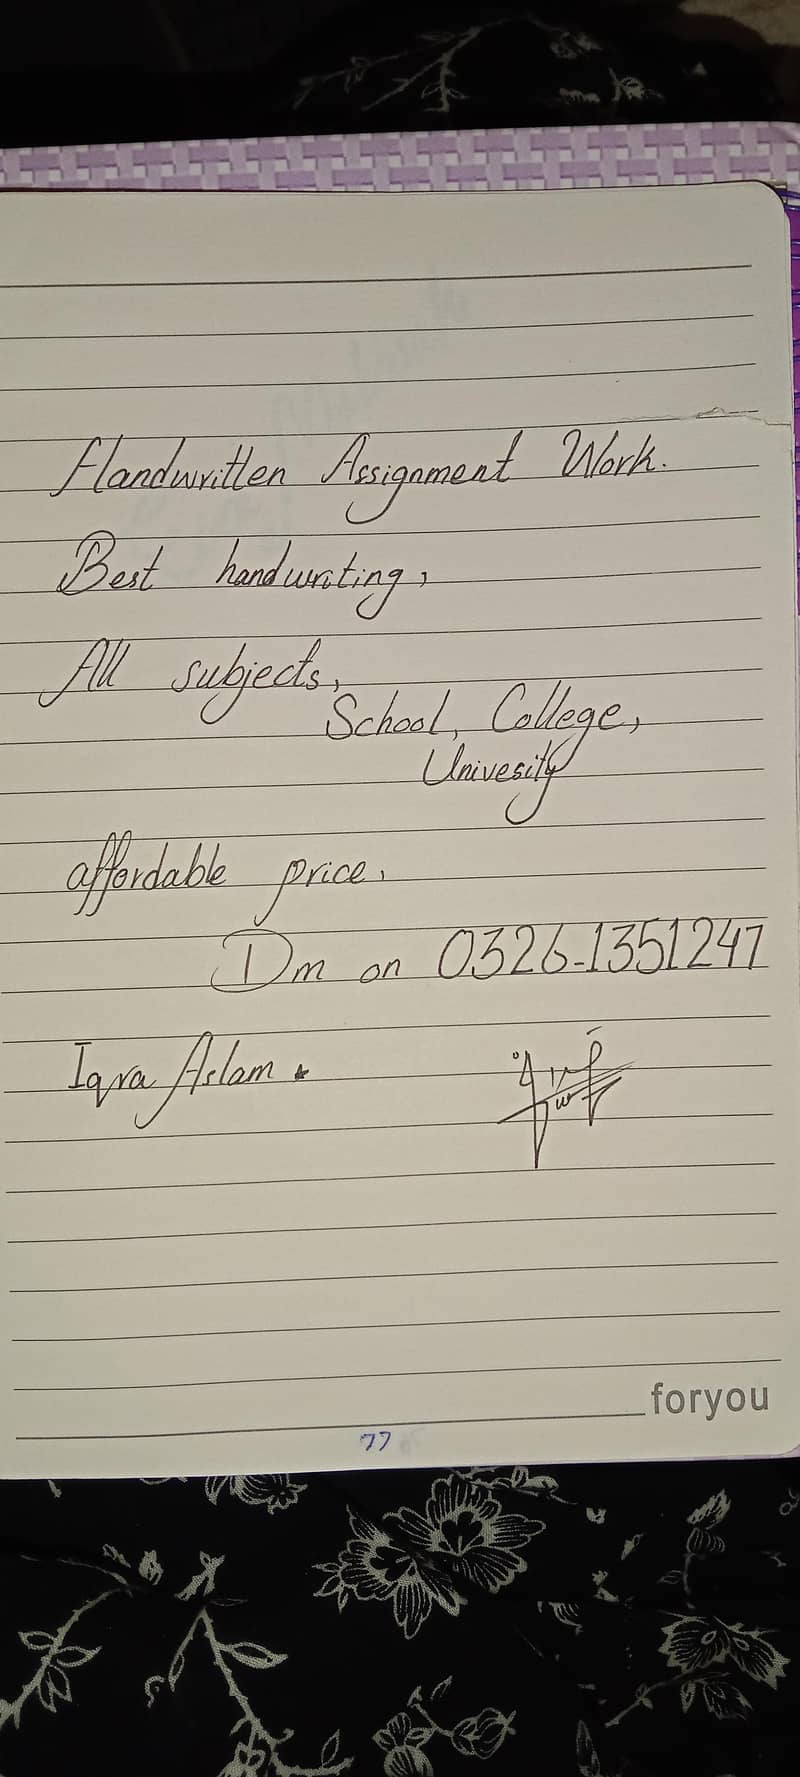 Handwritten Assignment Work.
Best handwriting,
All subjects,
School, College,
Univesity
affordable price,
Dm on 0326-1351247
Iqra Aslam.
foryou
77